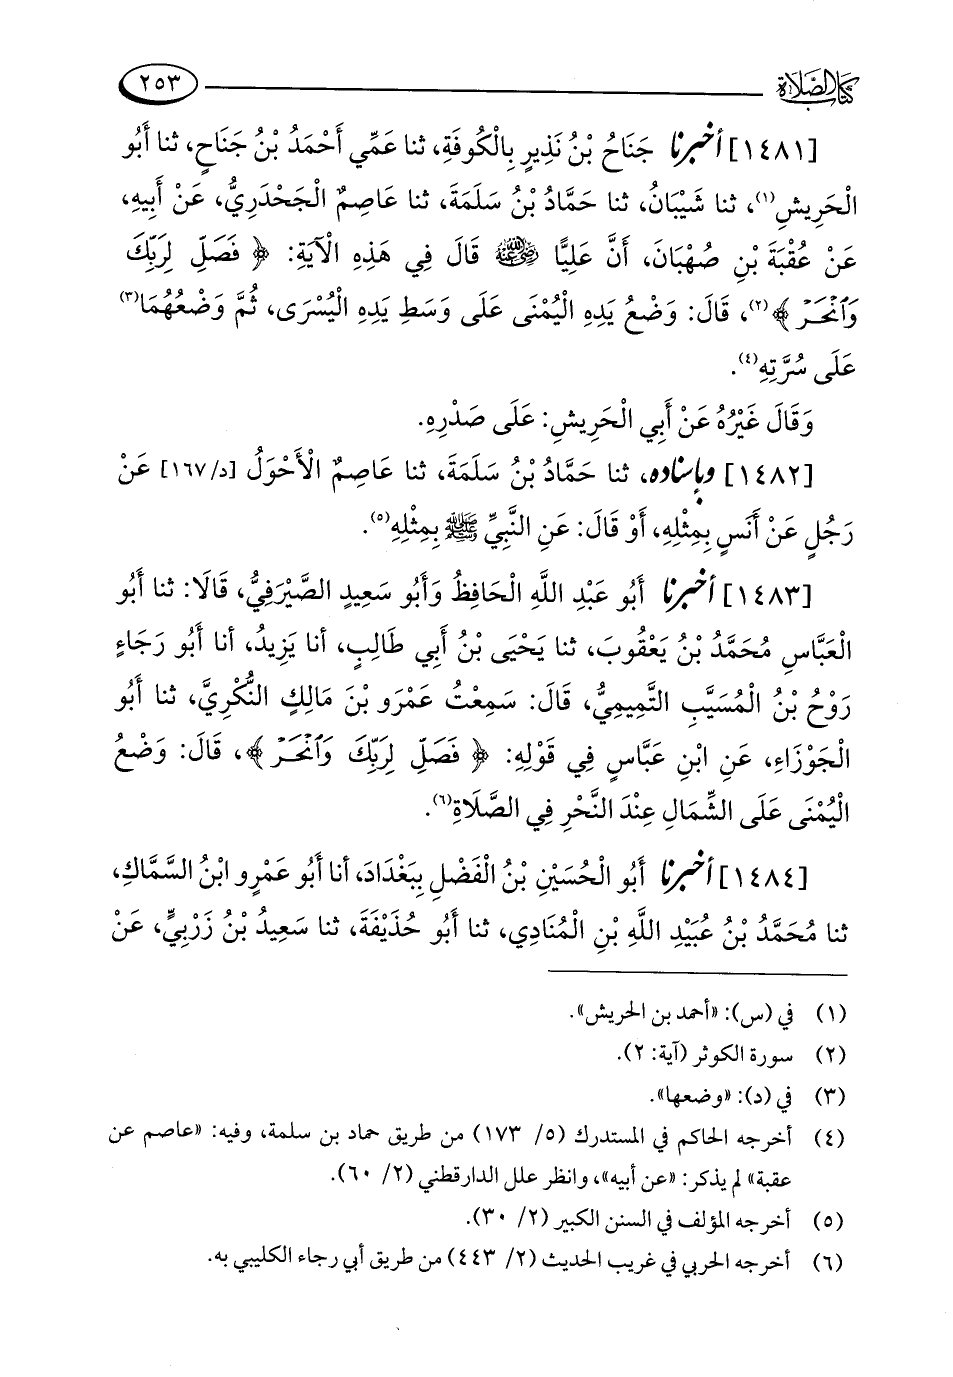 كتاب الصلاة ٢٥٣
[١٤٨١] أخبرنا جَنَاحُ بْنُ نَذِيرٍ بِالْكُوفَةِ، ثنا عَمِّي أَحْمَدُ بْنُ جَنَاحٍ، ثنا أَبُو
الْحَرِيشِ(١)، ثنا شَيْبَانُ، ثنا حَمَّادُ بْنُ سَلَمَةَ، ثنا عَاصِمٌ الْجَحْدَرِيُّ، عَنْ أَبِيهِ،
عَنْ عُقْبَةَ بْنِ صُهْبَانَ، أَنَّ عَلِيًّا رضي الله عنه قَالَ فِي هَذِهِ الْآيَةِ: ﴿ فَصَلِّ لِرَبِّكَ
وَٱنْحَرْ ﴾(٢)، قَالَ: وَضْعُ يَدِهِ الْيُمْنَى عَلَى وَسَطِ يَدِهِ الْيُسْرَى، ثُمَّ وَضْعُهُمَا(٣)
عَلَى سُرَّتِهِ(٤).
وَقَالَ غَيْرُهُ عَنْ أَبِي الْحَرِيشِ: عَلَى صَدْرِهِ.
[١٤٨٢] وبإسناده، ثنا حَمَّادُ بْنُ سَلَمَةَ، ثنا عَاصِمٌ الْأَحْوَلُ [د/١٦٧] عَنْ
رَجُلٍ عَنْ أَنَسٍ بِمِثْلِهِ، أَوْ قَالَ: عَنِ النَّبِيِّ ﷺ بِمِثْلِهِ(٥).
[١٤٨٣] أخبرنا أَبُو عَبْدِ اللَّهِ الْحَافِظُ وَأَبُو سَعِيدٍ الصَّيْرَفِيُّ، قَالَا: ثنا أَبُو
الْعَبَّاسِ مُحَمَّدُ بْنُ يَعْقُوبَ، ثنا يَحْيَى بْنُ أَبِي طَالِبٍ، أنا يَزِيدُ، أنا أَبُو رَجَاءٍ
رَوْحُ بْنُ الْمُسَيَّبِ التَّمِيمِيُّ، قَالَ: سَمِعْتُ عَمْرَو بْنَ مَالِكٍ النُّكْرِيَّ، ثنا أَبُو
الْجَوْزَاءِ، عَنِ ابْنِ عَبَّاسٍ فِي قَوْلِهِ: ﴿ فَصَلِّ لِرَبِّكَ وَٱنْحَرْ ﴾، قَالَ: وَضْعُ
الْيُمْنَى عَلَى الشِّمَالِ عِنْدَ النَّحْرِ فِي الصَّلَاةِ(٦).
[١٤٨٤] أخبرنا أَبُو الْحُسَيْنِ بْنُ الْفَضْلِ بِبَغْدَادَ، أنا أَبُو عَمْرِو ابْنُ السَّمَّاكِ،
ثنا مُحَمَّدُ بْنُ عُبَيْدِ اللَّهِ بْنِ الْمُنَادِي، ثنا أَبُو حُذَيْفَةَ، ثنا سَعِيدُ بْنُ زَرْبِيٍّ، عَنْ
(١) في (س): «أحمد بن الحريش».
(٢) سورة الكوثر (آية: ٢).
(٣) في (د): «وضعها».
(٤) أخرجه الحاكم في المستدرك (٥/ ١٧٣) من طريق حماد بن سلمة، وفيه: «عاصم عن
عقبة» لم يذكر: «عن أبيه»، وانظر علل الدارقطني (٢/ ٦٠).
(٥) أخرجه المؤلف في السنن الكبير (٢/ ٣٠).
(٦) أخرجه الحربي في غريب الحديث (٢/ ٤٤٣) من طريق أبي رجاء الكليبي به.